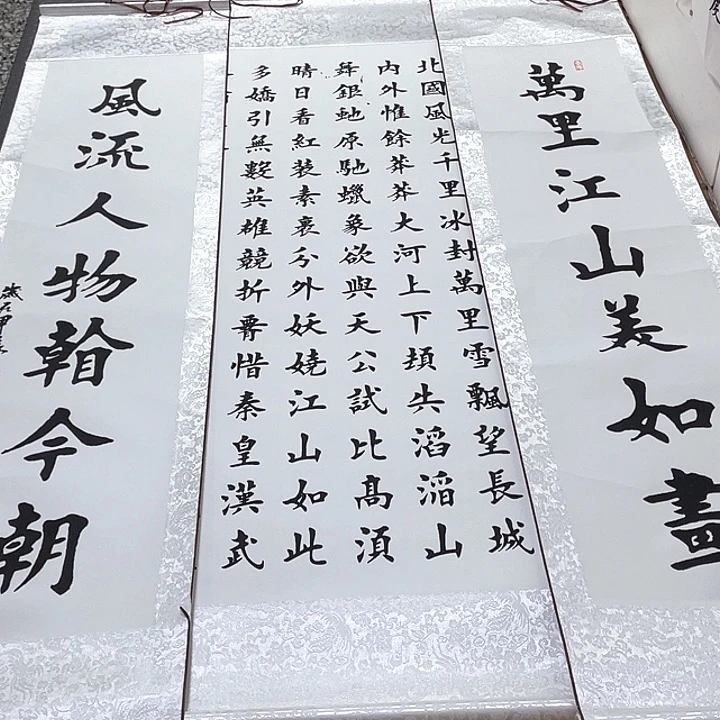 萬里江山美如畫
北國風光千里冰封萬里雪飄望長城
内外惟餘莽莽大河上下頓失滔滔山
舞銀虵原馳蠟象欲與天公試比髙須
晴日看紅装素裹分外妖嬈江山如此
多嬌引無數英雄競折腰惜秦皇漢武
風流人物翰今朝
歲在甲辰